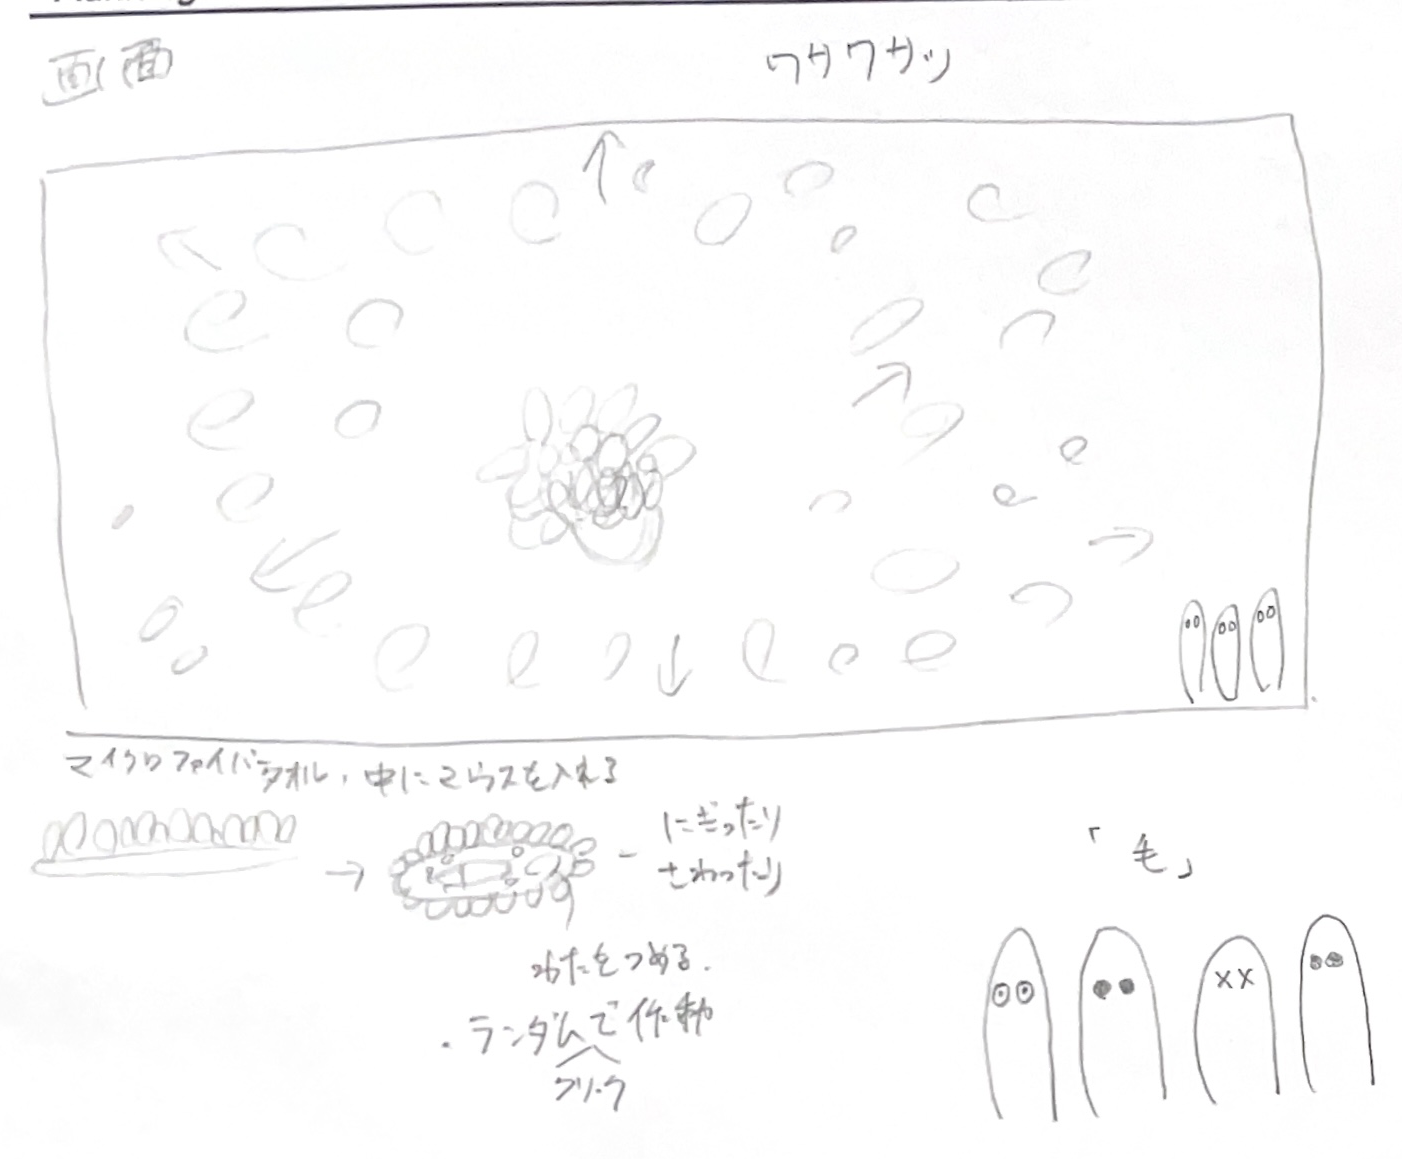 画面
ワサワサッ
マイクロファイバータオル、中にマウスを入れる
にぎったり
さわったり
わたをつめる.
・ランダムで作動
クリック
「毛」